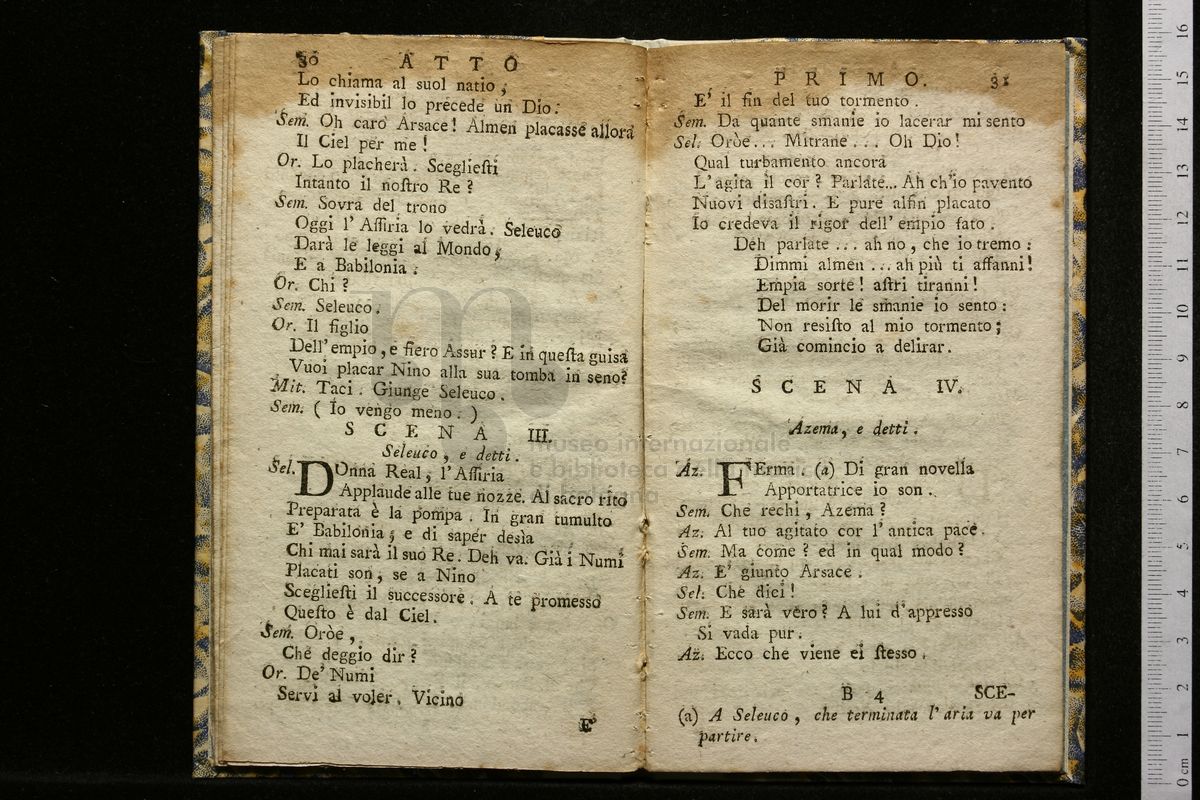 30 ATTO
Lo chiama al suol natio,
Ed invisibil lo precede un Dio.
Sem. Oh caro Arsace! Almen placasse allora
Il Ciel per me!
Or. Lo placherà. Scegliesti
Intanto il nostro Re?
Sem. Sovra del trono
Oggi l'Assiria lo vedrà. Seleuco
Darà le leggi al Mondo,
E a Babilonia.
Or. Chi?
Sem. Seleuco.
Or. Il figlio
Dell'empio, e fiero Assur? E in questa guisa
Vuoi placar Nino alla sua tomba in seno?
Mit. Taci. Giunge Seleuco.
Sem. (Io vengo meno.)
SCENA III.
Seleuco, e detti.
Sel. DOnna Real, l'Assiria
Applaude alle tue nozze. Al sacro rito
Preparata è la pompa. In gran tumulto
E' Babilonia, e di saper desìa
Chi mai sarà il suo Re. Deh va. Già i Numi
Placati son, se a Nino
Scegliesti il successore. A te promesso
Questo è dal Ciel.
Sem. Oròe,
Che deggio dir?
Or. De' Numi
Servi al voler. Vicino
E'
PRIMO. 31
E' il fin del tuo tormento.
Sem. Da quante smanie io lacerar mi sento
Sel. Oròe... Mitrane... Oh Dio!
Qual turbamento ancora
L'agita il cor? Parlate... Ah ch'io pavento
Nuovi disastri. E pure alfin placato
Io credeva il rigor dell'empio fato.
Deh parlate... ah no, che io tremo:
Dimmi almen... ah più ti affanni!
Empia sorte! astri tiranni!
Del morir le smanie io sento:
Non resisto al mio tormento;
Già comincio a delirar.
SCENA IV.
Azema, e detti.
Az. FErma. (a) Di gran novella
Apportatrice io son.
Sem. Che rechi, Azema?
Az. Al tuo agitato cor l'antica pace.
Sem. Ma come? ed in qual modo?
Az. E' giunto Arsace.
Sel. Che dici!
Sem. E sarà vero? A lui d'appresso
Si vada pur.
Az. Ecco che viene ei stesso.
B 4 SCE-
(a) A Seleuco, che terminata l'aria va per
partire.
museo internazionale
e biblioteca della
0 cm 1 2 3 4 5 6 7 8 9 10 11 12 13 14 15 16